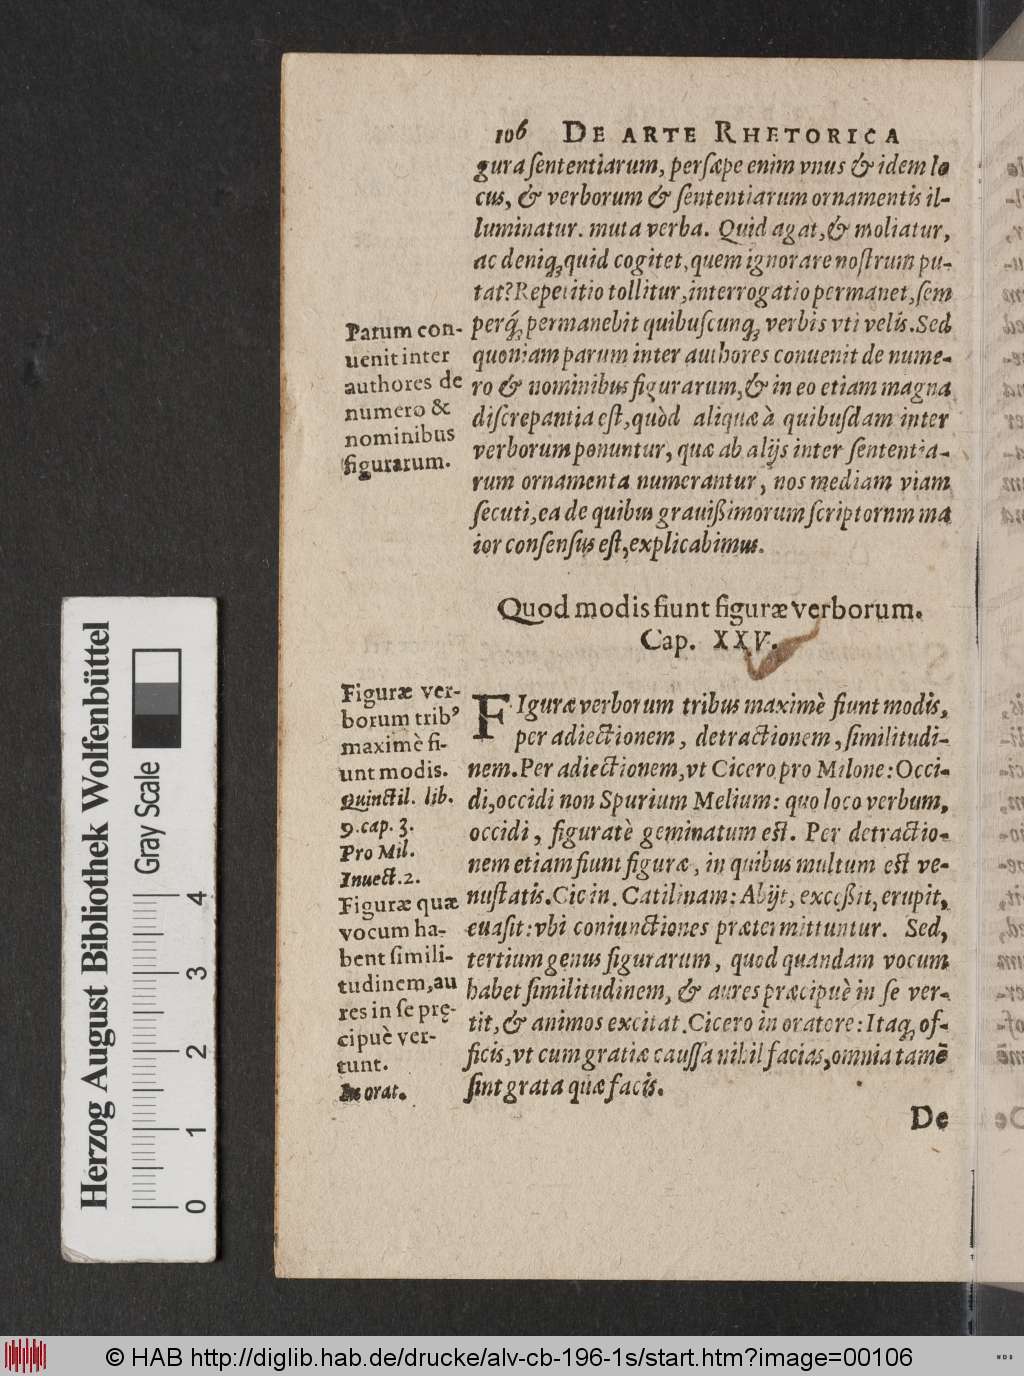 106 DE ARTE RHETORICA
gura sententiarum, persæpe enim vnus & idem lo
cus, & verborum & sententiarum ornamentis il-
luminatur. muta verba. Quid agat, & moliatur,
ac deniq; quid cogitet, quem ignorare nostrum pu-
tat? Repetitio tollitur, interrogatio permanet, sem
perq́; permanebit quibuscunq; verbis vti velis. Sed
quoniam parum inter authores conuenit de nume-
ro & nominibus figurarum, & in eo etiam magna
discrepantia est, quòd aliquæ à quibusdam inter
verborum ponuntur, quæ ab alijs inter sententia-
rum ornamenta numerantur, nos mediam viam
secuti, ea de quibus grauißimorum scriptornm ma
ior consensus est, explicabimus.
Parum con-
uenit inter
authores de
numero &
nominibus
figurarum.
Quod modis fiunt figuræ verborum.
Cap. XXV.
FIguræ verborum tribus maximè fiunt modis,
per adiectionem, detractionem, similitudi-
nem. Per adiectionem, vt Cicero pro Milone: Occi-
di, occidi non Spurium Melium: quo loco verbum,
occidi, figuratè geminatum est. Per detractio-
nem etiam fiunt figuræ, in quibus multum est ve-
nustatis. Cic in. Catilinam: Abijt, exceßit, erupit,
euasit: vbi coniunctiones prætermittuntur. Sed,
tertium genus figurarum, quod quandam vocum
habet similitudinem, & aures præcipuè in se ver-
tit, & animos excitat. Cicero in oratore: Itaq; of-
ficis, vt cum gratiæ caussa nihil facias, omnia tamē
sint grata quæ facis.
Figuræ ver-
borum trib⁹
maximè fi-
unt modis.
Quinctil. lib.
9. cap. 3.
Pro Mil.
Inuect. 2.
Figuræ quæ
vocum ha-
bent simili-
tudinem, au
res in se prę-
cipuè ver-
tunt.
In orat.
De
Herzog August Bibliothek Wolfenbüttel
Gray Scale
0 1 2 3 4
© HAB http://diglib.hab.de/drucke/alv-cb-196-1s/start.htm?image=00106